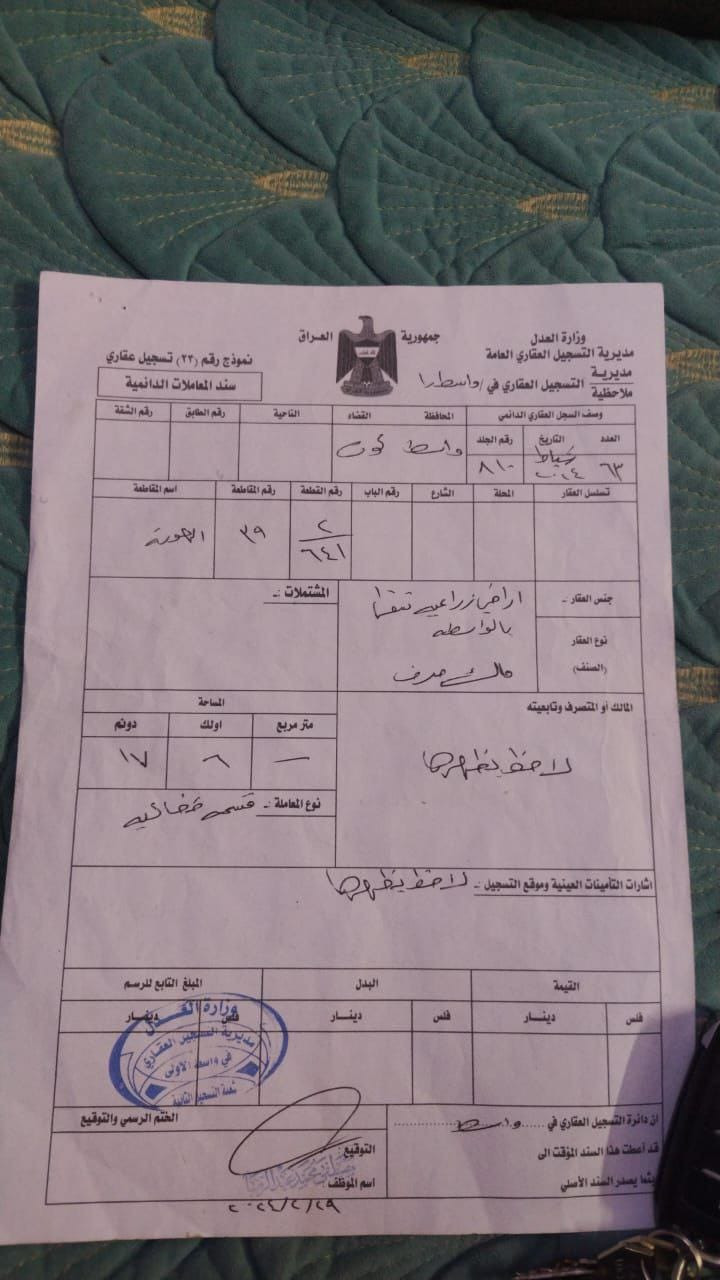 جمهورية العراق
وزارة العدل
مديرية التسجيل العقاري العامة
مديرية
ملاحظية
التسجيل العقاري في / واسط را
نموذج رقم (٢٣) تسجيل عقاري
سند المعاملات الدائمية
وصف السجل العقاري الدائمي
المحافظة
القضاء
الناحية
رقم الطابق
رقم الشقة
العدد
التاريخ
رقم الجلد
٦٣
شباط
٢٠٢٤
٨١٠
واسط
كوت
تسلسل العقار
المحلة
الشارع
رقم الباب
رقم القطعة
رقم المقاطعة
اسم المقاطعة
٢
٦٤١
٣٩
الهورة
جنس العقار :ـ
اراضي زراعية تسقى
بالواسطه
المشتملات :ـ
نوع العقار
(الصنف)
ملك صرف
المالك أو المتصرف وتابعيته
لاحظ يظهرها
المساحة
متر مربع
اولك
دونم
—
٦
١٧
نوع المعاملة :ـ قسمه قضائيه
اشارات التأمينات العينية وموقع التسجيل :ـ لاحظ يظهرها
القيمة
البدل
المبلغ التابع للرسم
فلس
دينـار
فلس
دينـار
فلس
دينـار
وزارة العدل
مديرية التسجيل العقاري
في واسط الاولى
شعبة التسجيل الثانية
ان دائرة التسجيل العقاري في ..... واسط .....
قد أعطت هذا السند المؤقت الى
ريثما يصدر السند الأصلي
الختم الرسمي والتوقيع
التوقيع:
اسم الموظف:
٢٠٢٤/٢/٢٩